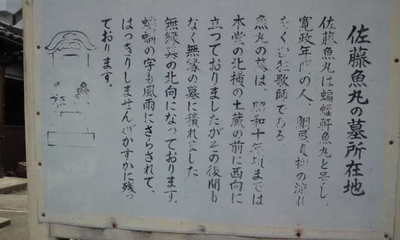 佐藤魚丸の墓所在地
佐藤魚丸は蝙蝠軒魚丸と号し、
寛政年間の人、朝弓貞柳の流れ
をくむ狂歌師である
魚丸の墓は、昭和十年頃までは
本堂の北横の土蔵の前に西向に
立っておりましたがその後間も
なく無縁の墓に積れました
無縁墓の北向になっております。
蝙蝠の字も風雨にさらされて、
はっきりしませんがかすかに残っ
ております。